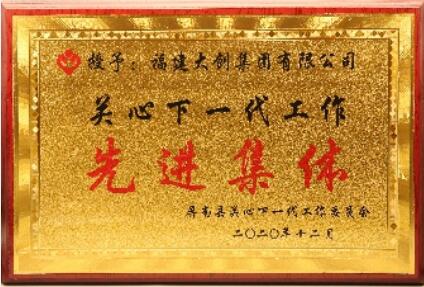 授予：福建大创集团有限公司
关心下一代工作
先进集体
屏南县关心下一代工作委员会
二〇二〇年十二月